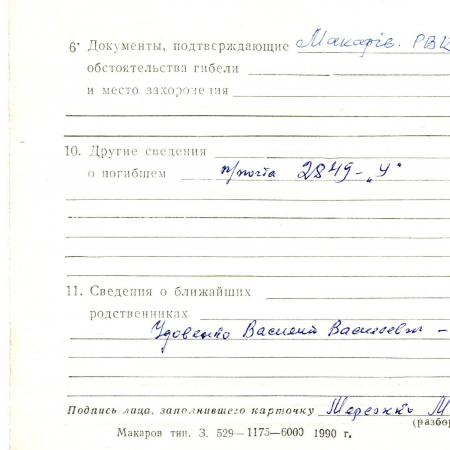 6· Документы, подтверждающие Макарів. РВК
обстоятельства гибели
и место захоронения
10. Другие сведения
о погибшем п/почта 2849-„У"
11. Сведения о ближайших
родственниках
Удовенко Василий Васильевич -
Подпись лица, заполнившего карточку Мережко М
(разбор
Макаров тип. З. 529—1175—6000 1990 г.